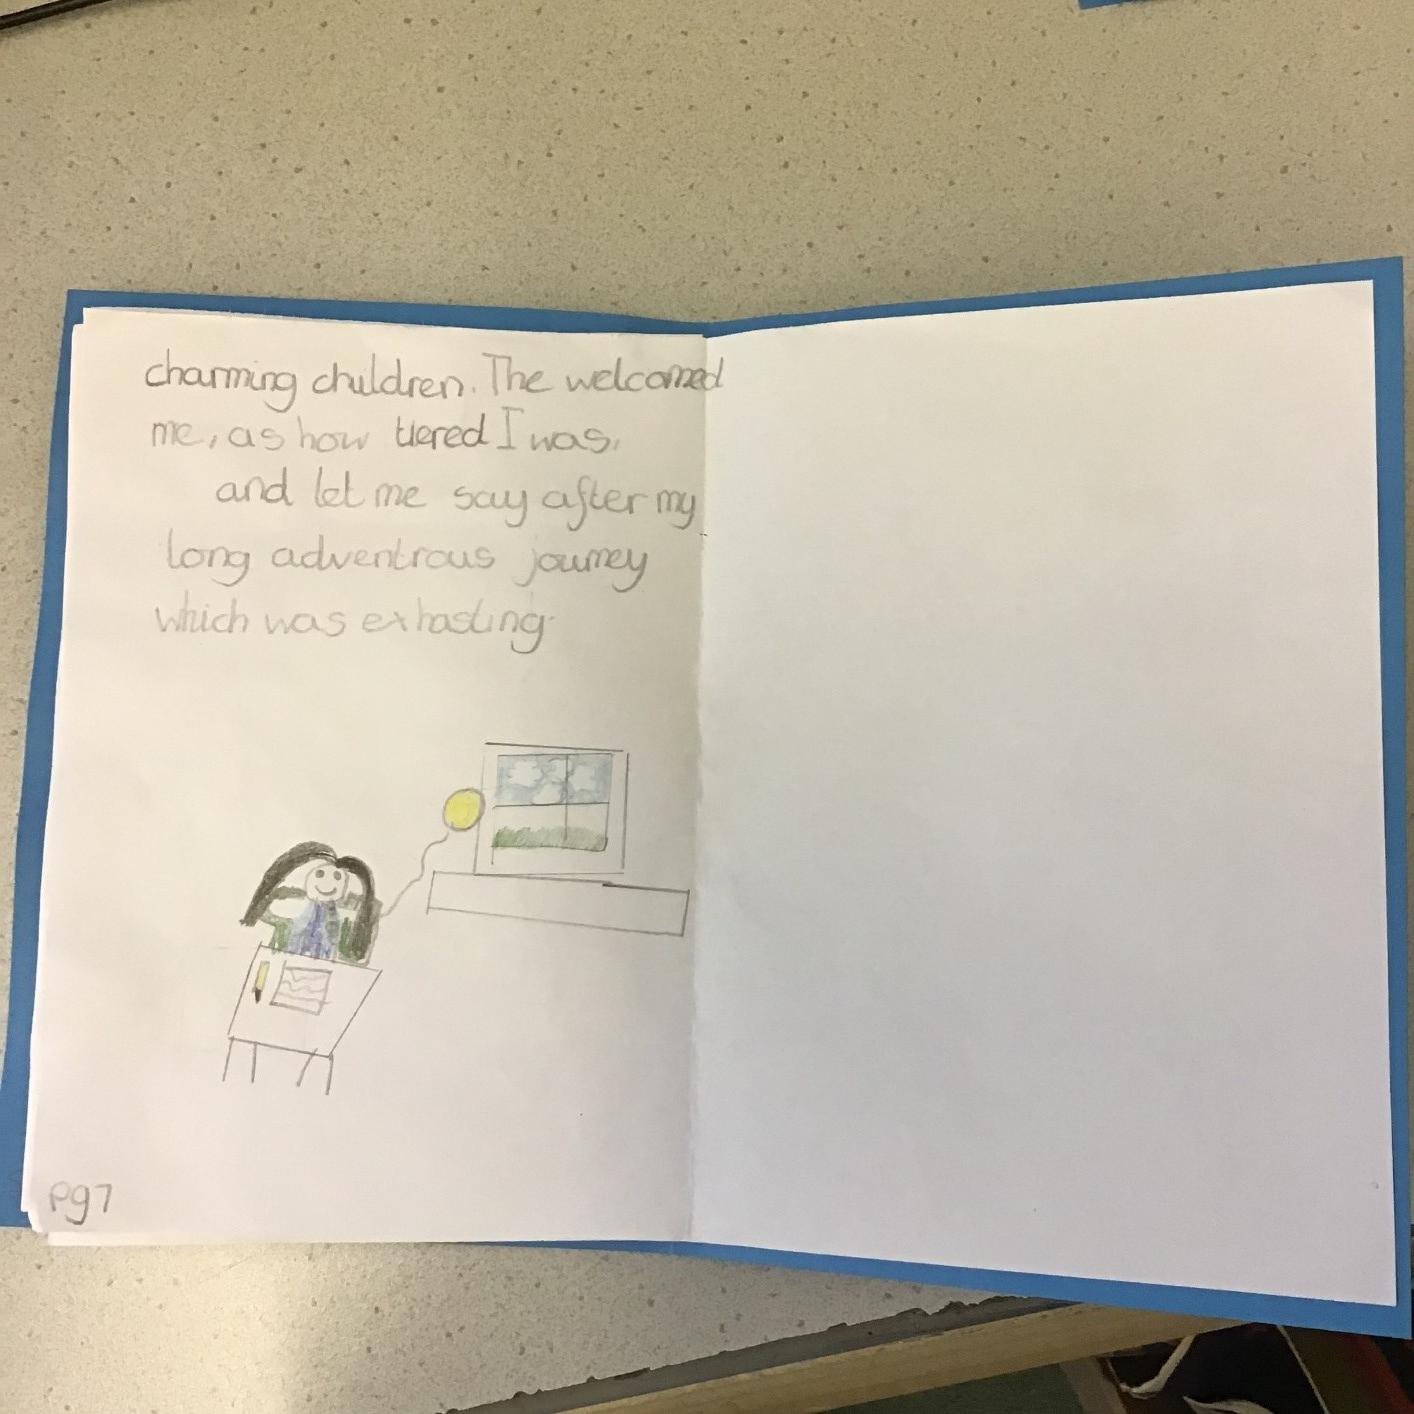 charming children. The welcomed
me, as how tiered I was.
and let me say after my
long adventrous journey
which was exhasting.
Pg7